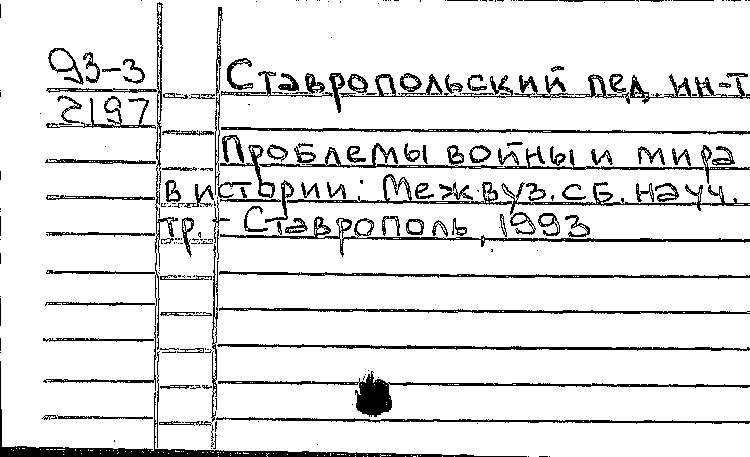 93-3
2197
Ставропольский пед. ин-т
Проблемы войны и мира
в истории: Меж.вуз.сб.науч.
тр. - Ставрополь, 1993